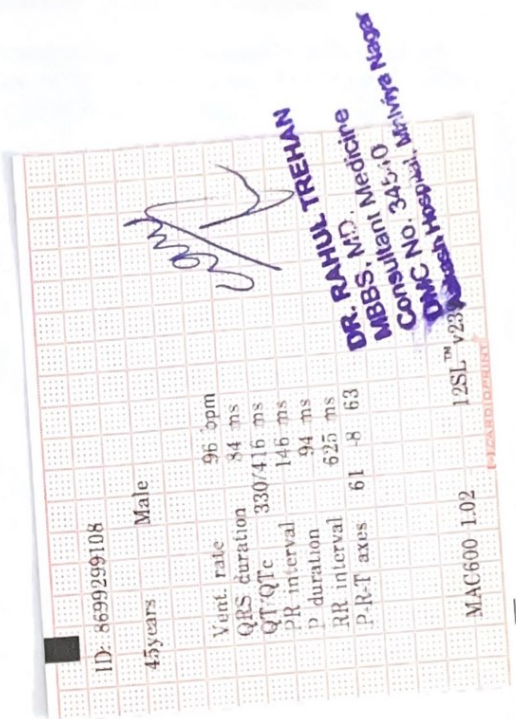 ID: 8699299108
45years Male
Vent. rate 96 bpm
QRS duration 84 ms
QT/QTc 330/416 ms
PR interval 146 ms
P duration 94 ms
RR interval 625 ms
P-R-T axes 61 -8 63
MAC600 1.02 12SL™ v239
DR. RAHUL TREHAN
MBBS, MD.
Consultant Medicine
DMC No.
Aakash Hospital, Malviya Nagar